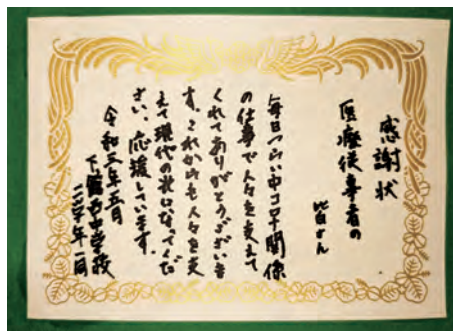 感謝状
医療従事者の
皆さん
毎日つらい中コロナ関係
の仕事で人々を支えて
くれてありがとうございま
す。これからも人々を支
えて現代の光になってくだ
さい。応援しています。
令和三年五月
中学校
二学年一同